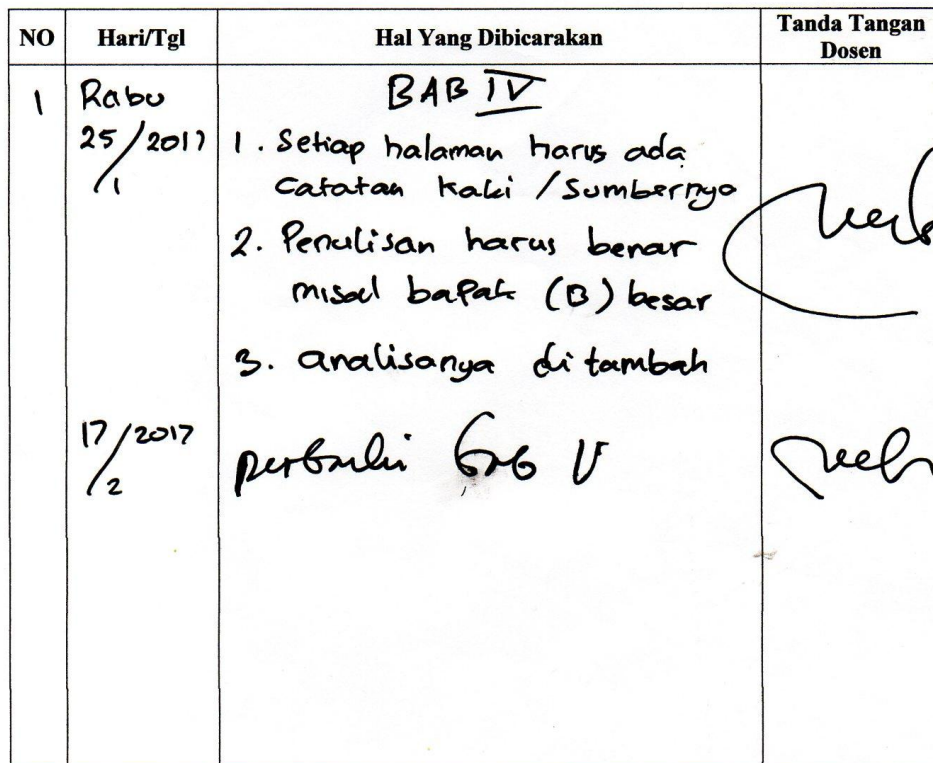 NO Hari/Tgl Hal Yang Dibicarakan Tanda Tangan
Dosen
1 Rabu BAB IV
25/1 2017 1. Setiap halaman harus ada
catatan kaki / Sumbernya
2. Penulisan harus benar
misal bapak (B) besar
3. analisanya di tambah
17/2 2017 perbaiki bab V